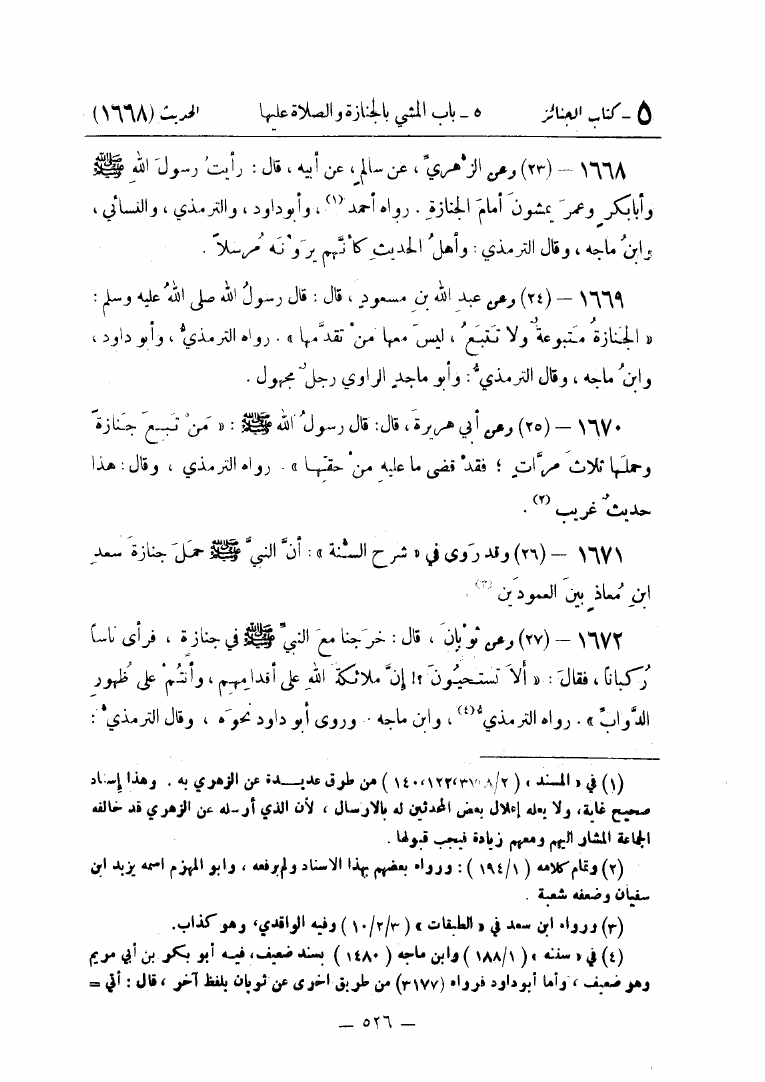 ٥ - كتاب الجنائز ٥ - باب المشي بالجنازة والصلاة عليها الحديث (١٦٦٨)
١٦٦٨ – (٢٣) وعن الزُّهريِّ، عن سالمٍ، عن أبيه، قال: رأيتُ رسولَ اللهِ ﷺ
وأبابكرٍ وعمرَ يمشونَ أمامَ الجنازةِ. رواه أحمد (١)، وأبوداود، والترمذي، والنسائي،
وابنُ ماجه، وقال الترمذي: وأهلُ الحديثِ كأنَّهم يرَوْنَه مُرسلاً.
١٦٦٩ – (٢٤) وعن عبدِ الله بنِ مسعودٍ، قال: قال رسولُ الله صلى اللهُ عليه وسلم:
« الجنازةُ مَتبوعةٌ ولا تَتبَعُ، ليسَ معها مَنْ تقدَّمها ». رواه الترمذيُّ، وأبو داود،
وابنُ ماجه، وقال الترمذيُّ: وأبو ماجدٍ الراوي رجلٌ مجهول.
١٦٧٠ – (٢٥) وعن أبي هريرةَ، قال: قال رسولُ الله ﷺ: « مَنْ تَبِعَ جَنازةً
وحملَها ثلاثَ مرَّاتٍ؛ فقدْ قضى ما عليهِ منْ حقِّها ». رواه الترمذي، وقال: هذا
حديثٌ غريب (٢).
١٦٧١ – (٢٦) وقد رَوى في « شرح السُّنة »: أنَّ النبيَّ ﷺ حمَلَ جنازةَ سعدِ
ابنِ مُعاذٍ بينَ العمودَين (٣).
١٦٧٢ – (٢٧) وعن ثوْبانَ، قال: خرَجنا معَ النبيِّ ﷺ في جنازةٍ، فرأى ناساً
رُكباناً، فقالَ: « ألاَ تستَحيُونَ؟! إنَّ ملائكةَ اللهِ على أقدامِهم، وأنتُمْ على ظُهورِ
الدَّوابِّ ». رواه الترمذيُّ (٤)، وابن ماجه. وروى أبو داود نحوَه، وقال الترمذيُّ:
(١) في « المسند » (٨/٢، ٣٧، ١٢٢، ١٤٠) من طرق عديـــدة عن الزهري به. وهذا إسناد
صحيح غاية، ولا يعله إعلال بعض المحدثين له بالارسال، لأن الذي أرسله عن الزهري قد خالفه
الجماعة المشار اليهم ومعهم زيادة فيجب قبولها.
(٢) وتمام كلامه (١٩٤/١): ورواه بعضهم بهذا الاسناد ولم يرفعه، وابو المهزم اسمه يزيد ابن
سفيان وضعفه شعبة.
(٣) ورواه ابن سعد في « الطبقات » (١٠/٢/٣) وفيه الواقدي، وهو كذاب.
(٤) في « سننه » (١٨٨/١) وابن ماجه (١٤٨٠) بسند ضعيف، فيـه أبو بكر بن أبي مريم
وهو ضعيف، وأما أبوداود فرواه (٣١٧٧) من طريق اخرى عن ثوبان بلفظ آخر، قال: أتي =
— ٥٢٦ —